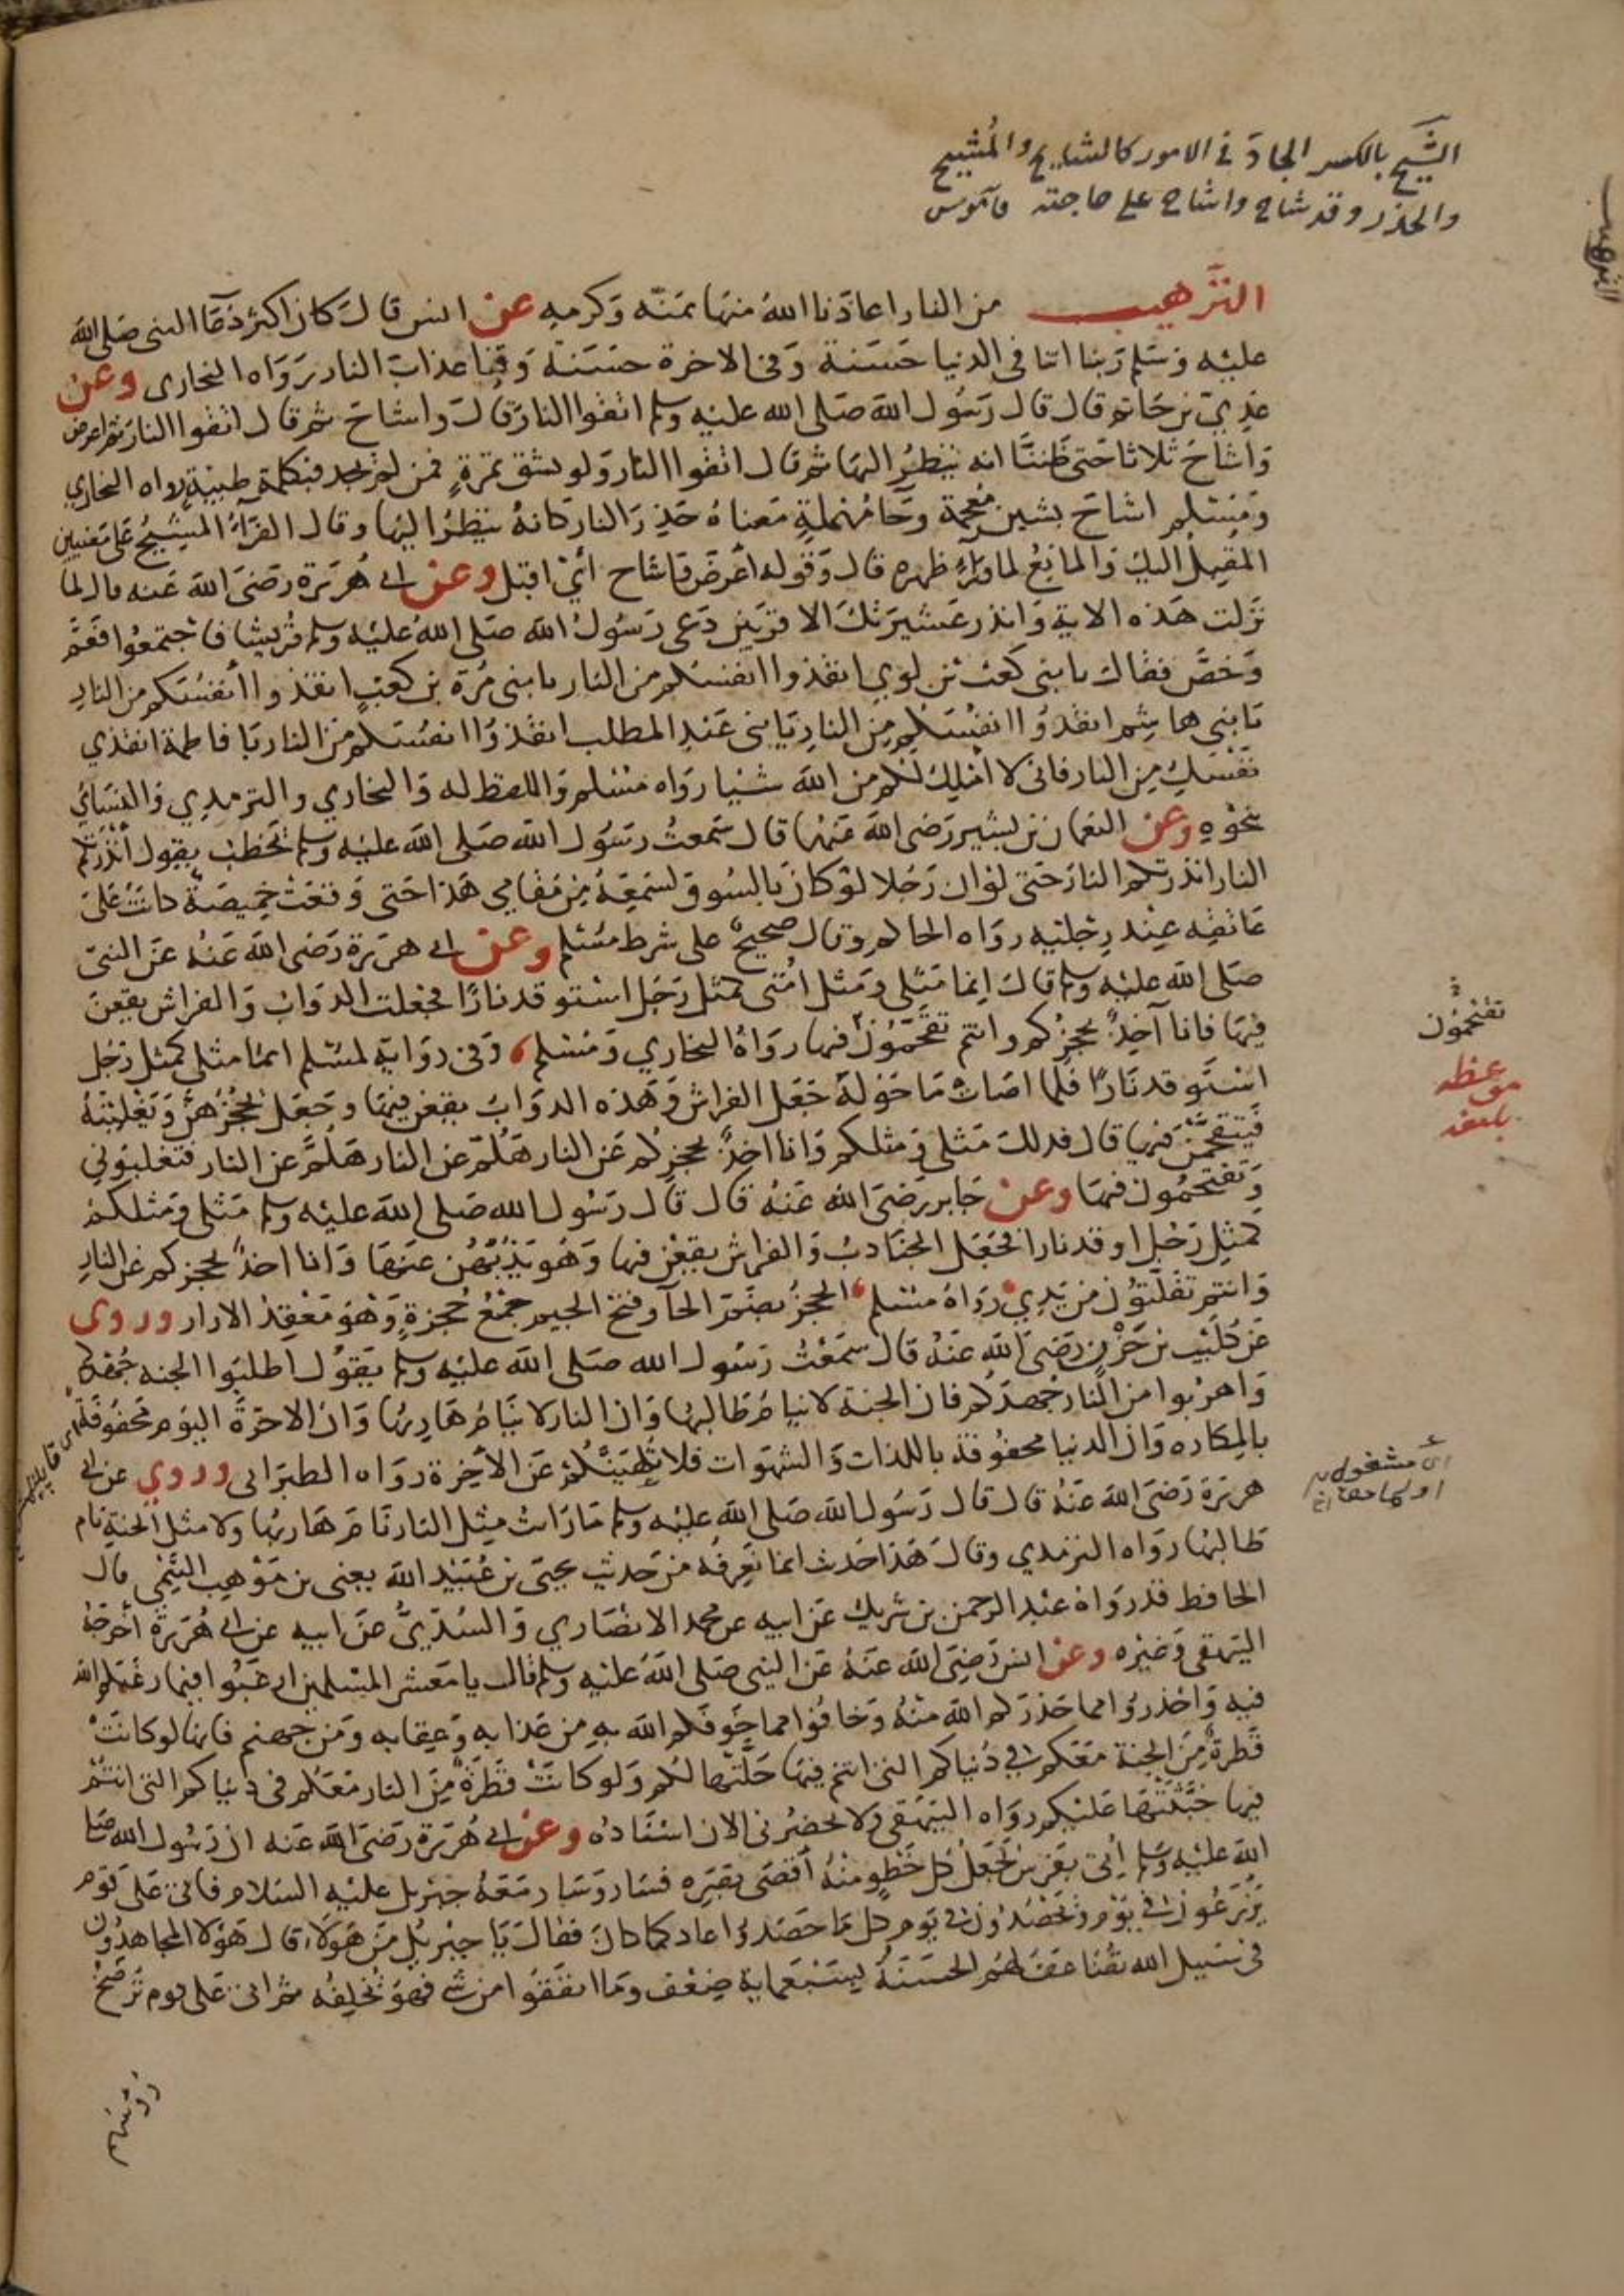 الشيح بالكسر الجاد في الامور كالشايح والمشيح
والحذر وقد شاح واشاح على حاجته قاموس
الترهيب
الترهيب من النار اعاذنا الله منها بمنه وكرمه عن انس قال كان اكثر دعا النبى صلى الله
عليه وسلم ربنا اتنا فى الدنيا حسنة وفى الاخرة حسنة وقنا عذاب النار رواه البخارى وعن
عدي بن حاتم قال قال رسول الله صلى الله عليه وسلم اتقوا النار قال واشاح ثم قال اتقوا النار ثم اعرض
واشاح ثلاثا حتى ظننا انه ينظر اليها ثم قال اتقوا النار ولو بشق تمرة فمن لم يجد فبكلمة طيبة رواه البخاري
ومسلم اشاح بشين معجمة وحا مهملة معناه حذر النار كانه ينظر اليها وقال الفرآء المشيح على معنيين
المقبل اليك والمانع لما ورآء ظهره قال وقوله اعرض فاشاح أي اقبل وعن ابي هريرة رضى الله عنه قال لما
نزلت هذه الاية وانذر عشيرتك الاقربين دعى رسول الله صلى الله عليه وسلم قريشا فاجتمعوا فعم
وخص فقال يا بنى كعب بن لوي انقذوا انفسكم من النار يا بنى مرة بن كعب انقذوا أنفسكم من النار
يا بنى هاشم انقذوا انفسكم من النار يا بنى عبد المطلب انقذوا انفسكم من النار يا فاطمة انقذي
نفسك من النار فانى لا املك لكم من الله شيا رواه مسلم واللفظ له والبخاري والترمدي والنسائي
بنحوه وعن النعمان بن بشير رضى الله عنهما قال سمعت رسول الله صلى الله عليه وسلم يخطب يقول أنذرتكم
النار انذرتكم النار حتى لو ان رجلا لو كان بالسوق لسمعه من مقامي هذا حتى وقعت خميصة كانت على
عاتقه عند رجليه رواه الحاكم وقال صحيح على شرط مسلم وعن ابي هريرة رضى الله عنه عن النبى
صلى الله عليه وسلم قال انما مثلى ومثل امتى كمثل رجل استوقد نارا فجعلت الدواب والفراش يقعن
فيها فانا آخذ بحجزكم وانتم تقحمون فيها رواه البخاري ومسلم وفى رواية لمسلم انما مثلى كمثل رجل
استوقد نارا فلما اضات ما حوله جعل الفراش وهذه الدواب يقعن فيها وجعل يحجزهن ويغلبنه
فيتقحمن فيها قال فدلك مثلى ومثلكم وانا اخذ بحجزكم عن النار هلم عن النار هلم عن النار فتغلبوني
وتقتحمون فيها وعن جابر رضى الله عنه قال قال رسول الله صلى الله عليه وسلم مثلى ومثلكم
كمثل رجل اوقد نارا فجعل الجنادب والفراش يقعن فيها وهو يذبهن عنها وانا اخذ بحجزكم عن النار
وانتم تفلتون من يدي رواه مسلم الحجز بضم الحآ وفتح الجيم جمع حجزة وهو معقد الازار وروى
عن كليب بن حزن رضى الله عنه قال سمعت رسول الله صلى الله عليه وسلم يقول اطلبوا الجنة جهدكم
واهربوا من النار جهدكم فان الجنة لا ينام طالبها وان النار لا ينام هاربها وان الاخرة اليوم محفوفة
بالمكاره وان الدنيا محفوفة باللذات والشهوات فلا تلهينكم عن الاخرة رواه الطبرانى وروي عن ابي
هريرة رضى الله عنه قال قال رسول الله صلى الله عليه وسلم ما رايت مثل النار نام هاربها ولا مثل الجنة نام
طالبها رواه الترمدي وقال هذا حديث انما نعرفه من حديث يحيى بن عبيد الله يعنى بن موهب التيمى قال
الحافظ قد رواه عبد الرحمن بن شريك عن ابيه عن محمد الانصاري والسدى عن ابيه عن ابي هريرة أخرجه
البيهقى وغيره وعن انس رضى الله عنه عن النبى صلى الله عليه وسلم قال يا معشر المسلمين ارغبوا فيما رغبكم الله
فيه واحذروا مما حذركم الله منه وخافوا مما خوفكم الله به من عذابه وعقابه ومن جهنم فانها لو كانت
قطرة من الجنة معكم في دنياكم التى انتم فيها حلتها لكم ولو كانت قطرة من النار معكم فى دنياكم التى انتم
فيها خبثتها عليكم رواه البيهقى ولا يحضرنى الان اسناده وعن ابي هريرة رضى الله عنه ان رسول الله صلى
الله عليه وسلم اتى بفرس يجعل كل خطو منه اقصى بصره فسار وسار معه جبريل عليه السلام فاتى على قوم
يزرعون في يوم ويحصدون في يوم كل ما حصدوا عاد كما كان فقال يا جبريل من هولاء قال هولا المجاهدون
فى سبيل الله تضاعف لهم الحسنة بسبعماية ضعف وما انفقوا من شي فهو يخلفه ثم اتى على قوم ترضخ
تقتحمون
موعظه
بليغه
اى مشغول
رؤسهم